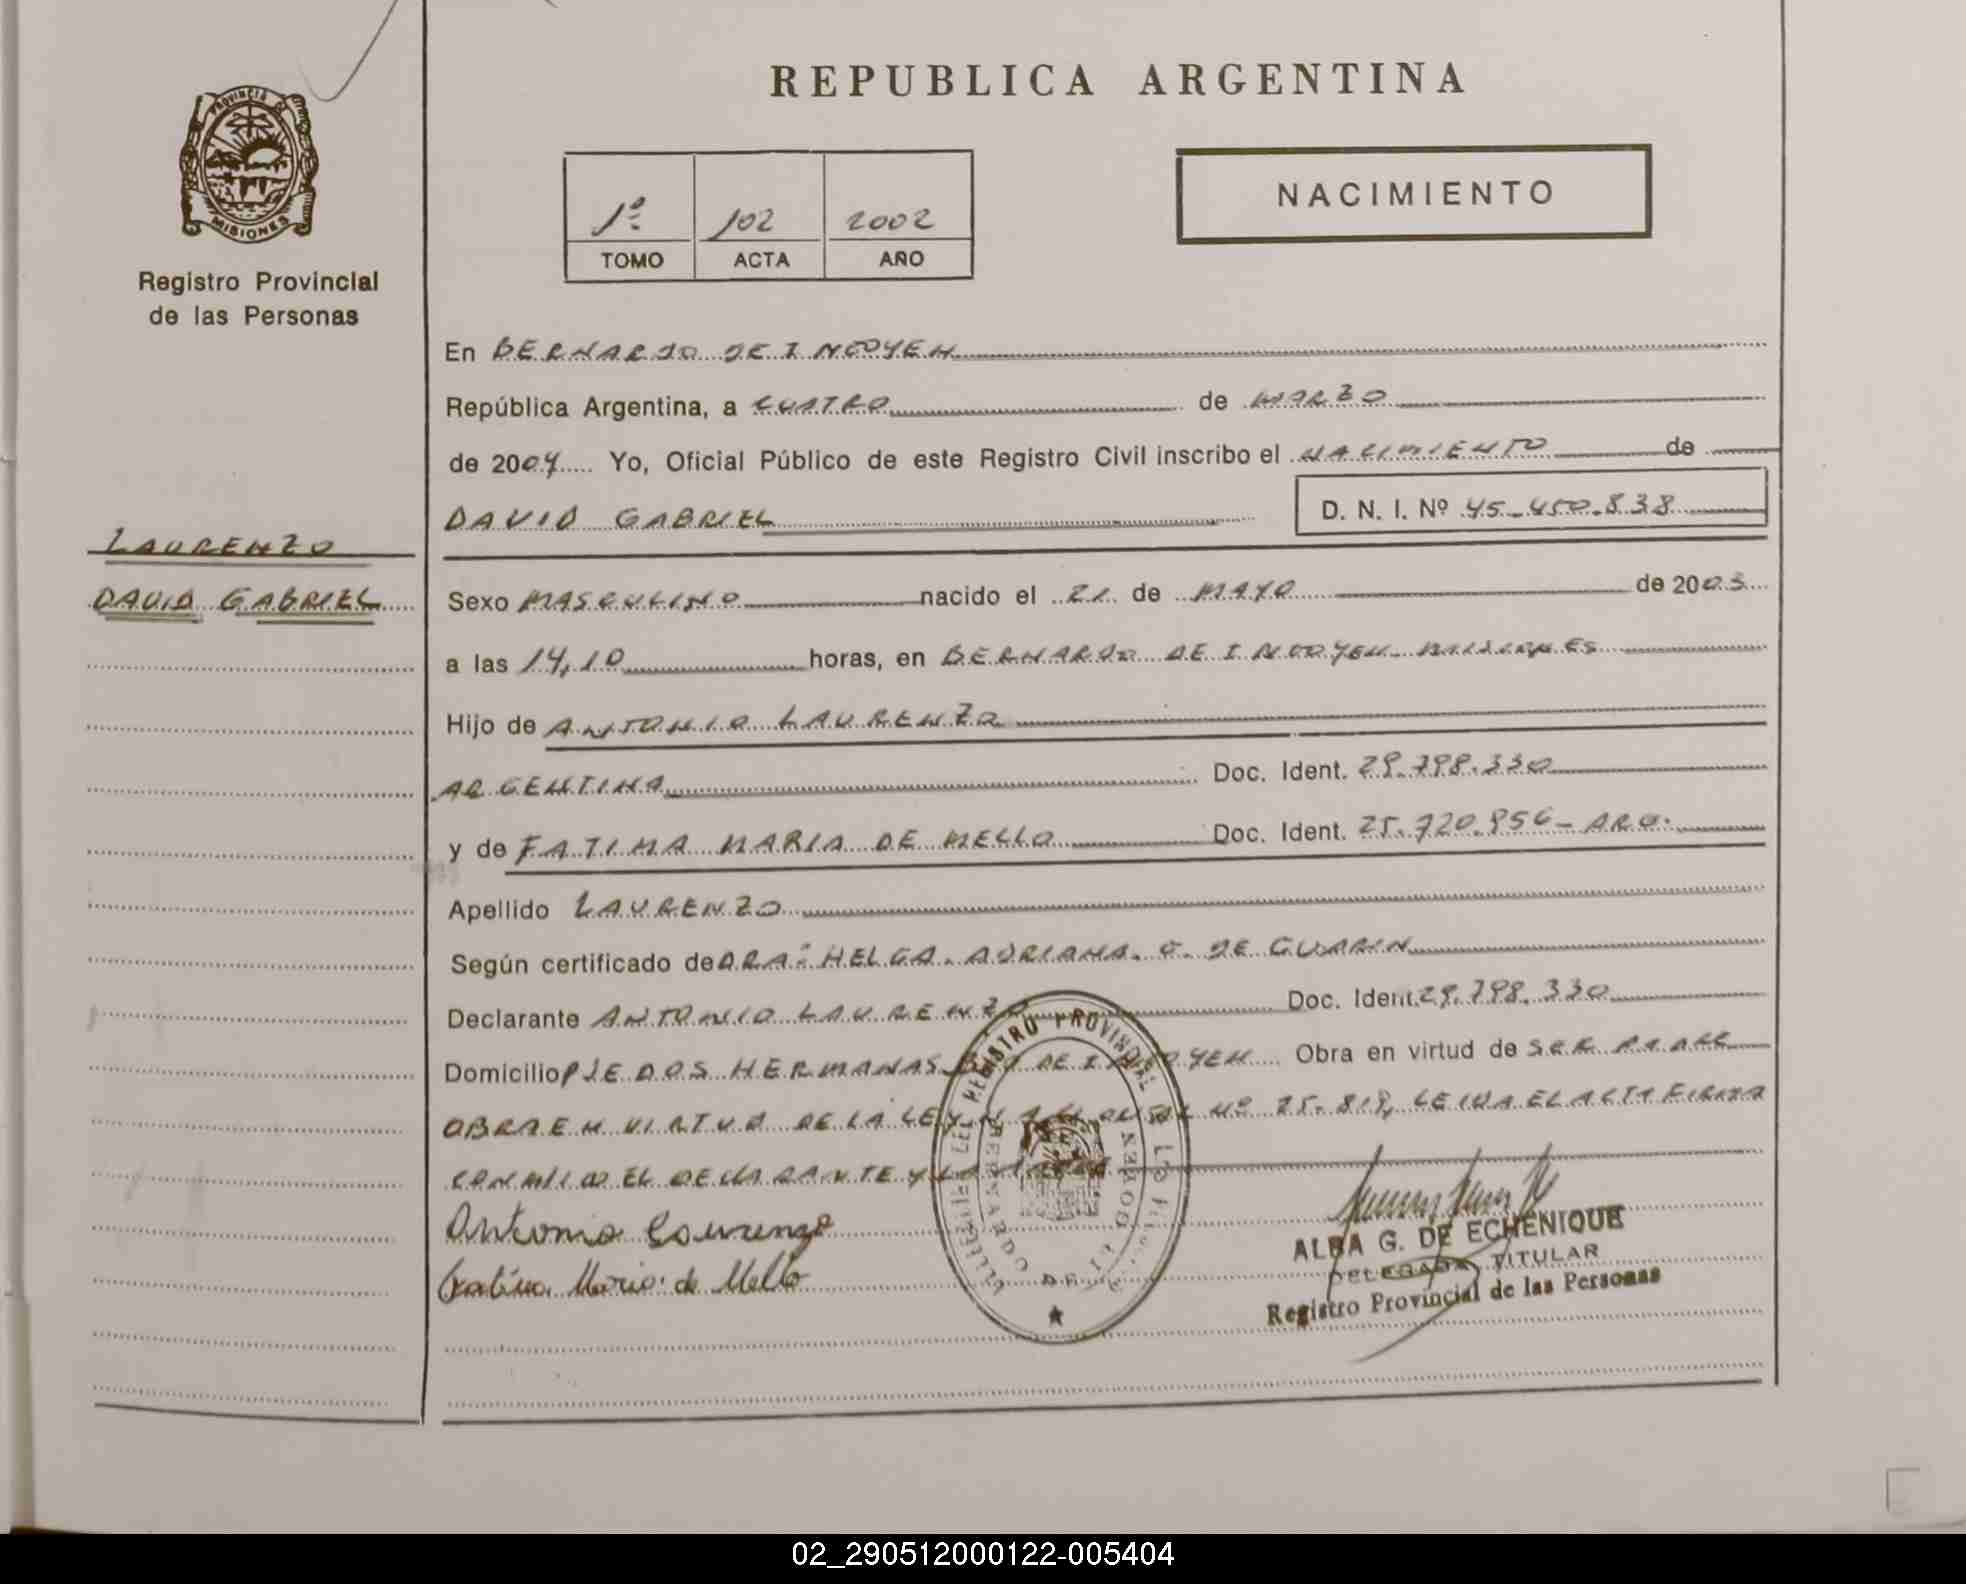 REPUBLICA ARGENTINA
PROVINCIA DE
MISIONES
Registro Provincial
de las Personas
1º 102 2002
TOMO ACTA AÑO
NACIMIENTO
En BERNARDO DE IRIGOYEN
República Argentina, a CUATRO de MARZO
de 2004 Yo, Oficial Público de este Registro Civil inscribo el NACIMIENTO de
DAVID GABRIEL D. N. I. Nº 45.450.838
LAURENZO
DAVID GABRIEL
Sexo MASCULINO nacido el 21 de MAYO de 2003
a las 14,10 horas, en BERNARDO DE IRIGOYEN MISIONES
Hijo de ANTONIO LAURENZO
ARGENTINA Doc. Ident. 29.798.330
y de FATIMA MARIA DE MELLO Doc. Ident. 25.720.956 - ARG.
Apellido LAURENZO
Según certificado de DRA: HELGA. ADRIANA. C. DE GUARIN
Declarante ANTONIO LAURENZO Doc. Ident. 29.798.330
Domicilio PJE DOS HERMANAS BDO DE IRIGOYEN Obra en virtud de SER PADRE
OBRA EN VIRTUD DE LA LEY NACIONAL Nº 25.819, LEIDA EL ACTA FIRMA
CONMIGO EL DECLARANTE Y LA
Antonio Laurenzo
Fatima Maria de Mello
REGISTRO PROVINCIAL DE LAS
BERNARDO DE IRIGOYEN
ALBA G. DE ECHENIQUE
DELEGADA TITULAR
Registro Provincial de las Personas
02_290512000122-005404